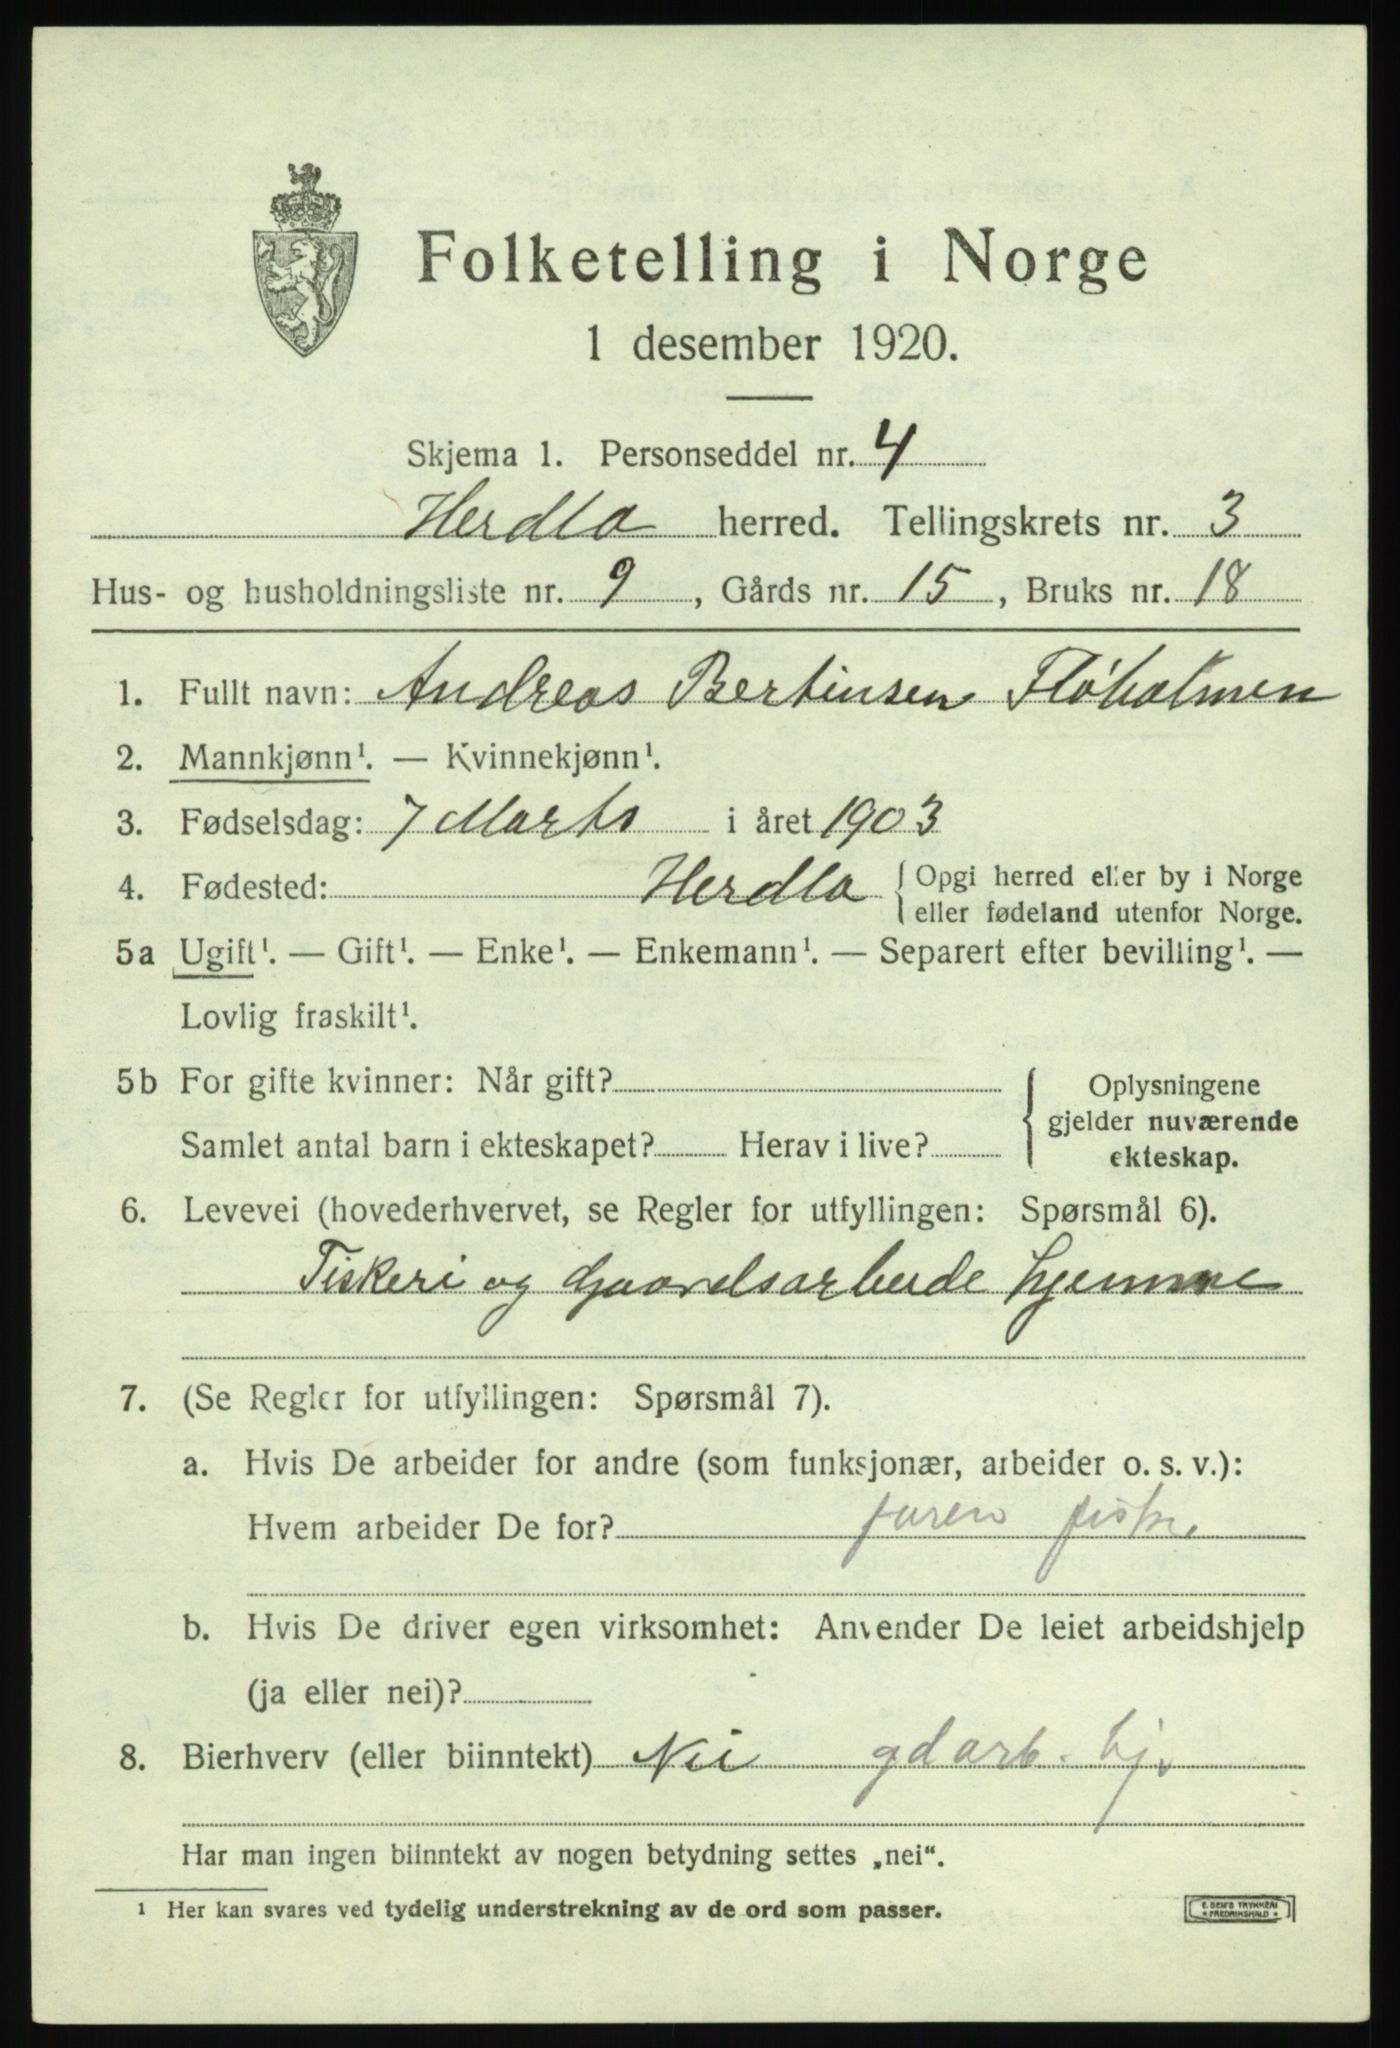 Folketelling i Norge
1 desember 1920.
Skjema 1. Personseddel nr. 4
Herdla herred. Tellingskrets nr. 3
Hus- og husholdningsliste nr. 9, Gårds nr. 15, Bruks nr. 18
1. Fullt navn: Andreas Bertinsen Fløholmen
2. Mannkjønn¹. — Kvinnekjønn¹.
3. Fødselsdag: 7 Marts i året 1903
4. Fødested: Herdla { Opgi herred eller by i Norge
eller fødeland utenfor Norge.
5a Ugift¹. — Gift¹. — Enke¹. — Enkemann¹. — Separert efter bevilling¹. —
Lovlig fraskilt¹.
5b For gifte kvinner: Når gift? { Oplysningene
gjelder nuværende
Samlet antal barn i ekteskapet? Herav i live?
ekteskap.
6. Levevei (hovederhvervet, se Regler for utfyllingen: Spørsmål 6).
Fiskeri og Gaardsarbeide hjemme
7. (Se Regler for utfyllingen: Spørsmål 7).
a. Hvis De arbeider for andre (som funksjonær, arbeider o. s. v.):
Hvem arbeider De for? faren
b. Hvis De driver egen virksomhet: Anvender De leiet arbeidshjelp
(ja eller nei)?
8. Bierhverv (eller biinntekt) Nei gdarb. hj.
Har man ingen biinntekt av nogen betydning settes „nei“.
¹ Her kan svares ved tydelig understrekning av de ord som passer.
E. SEM'S TRYKKERI
* FREDRIKSHALD *